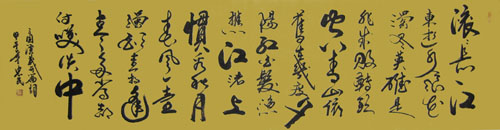 滚滚长江
东逝水浪花
淘尽英雄是
非成败转头
空青山依
旧在几度夕
阳红白发渔
樵江渚上
惯看秋月
春风一壶
浊酒喜相逢
古今多少事都
付笑谈中
三国演义开篇词
甲午年